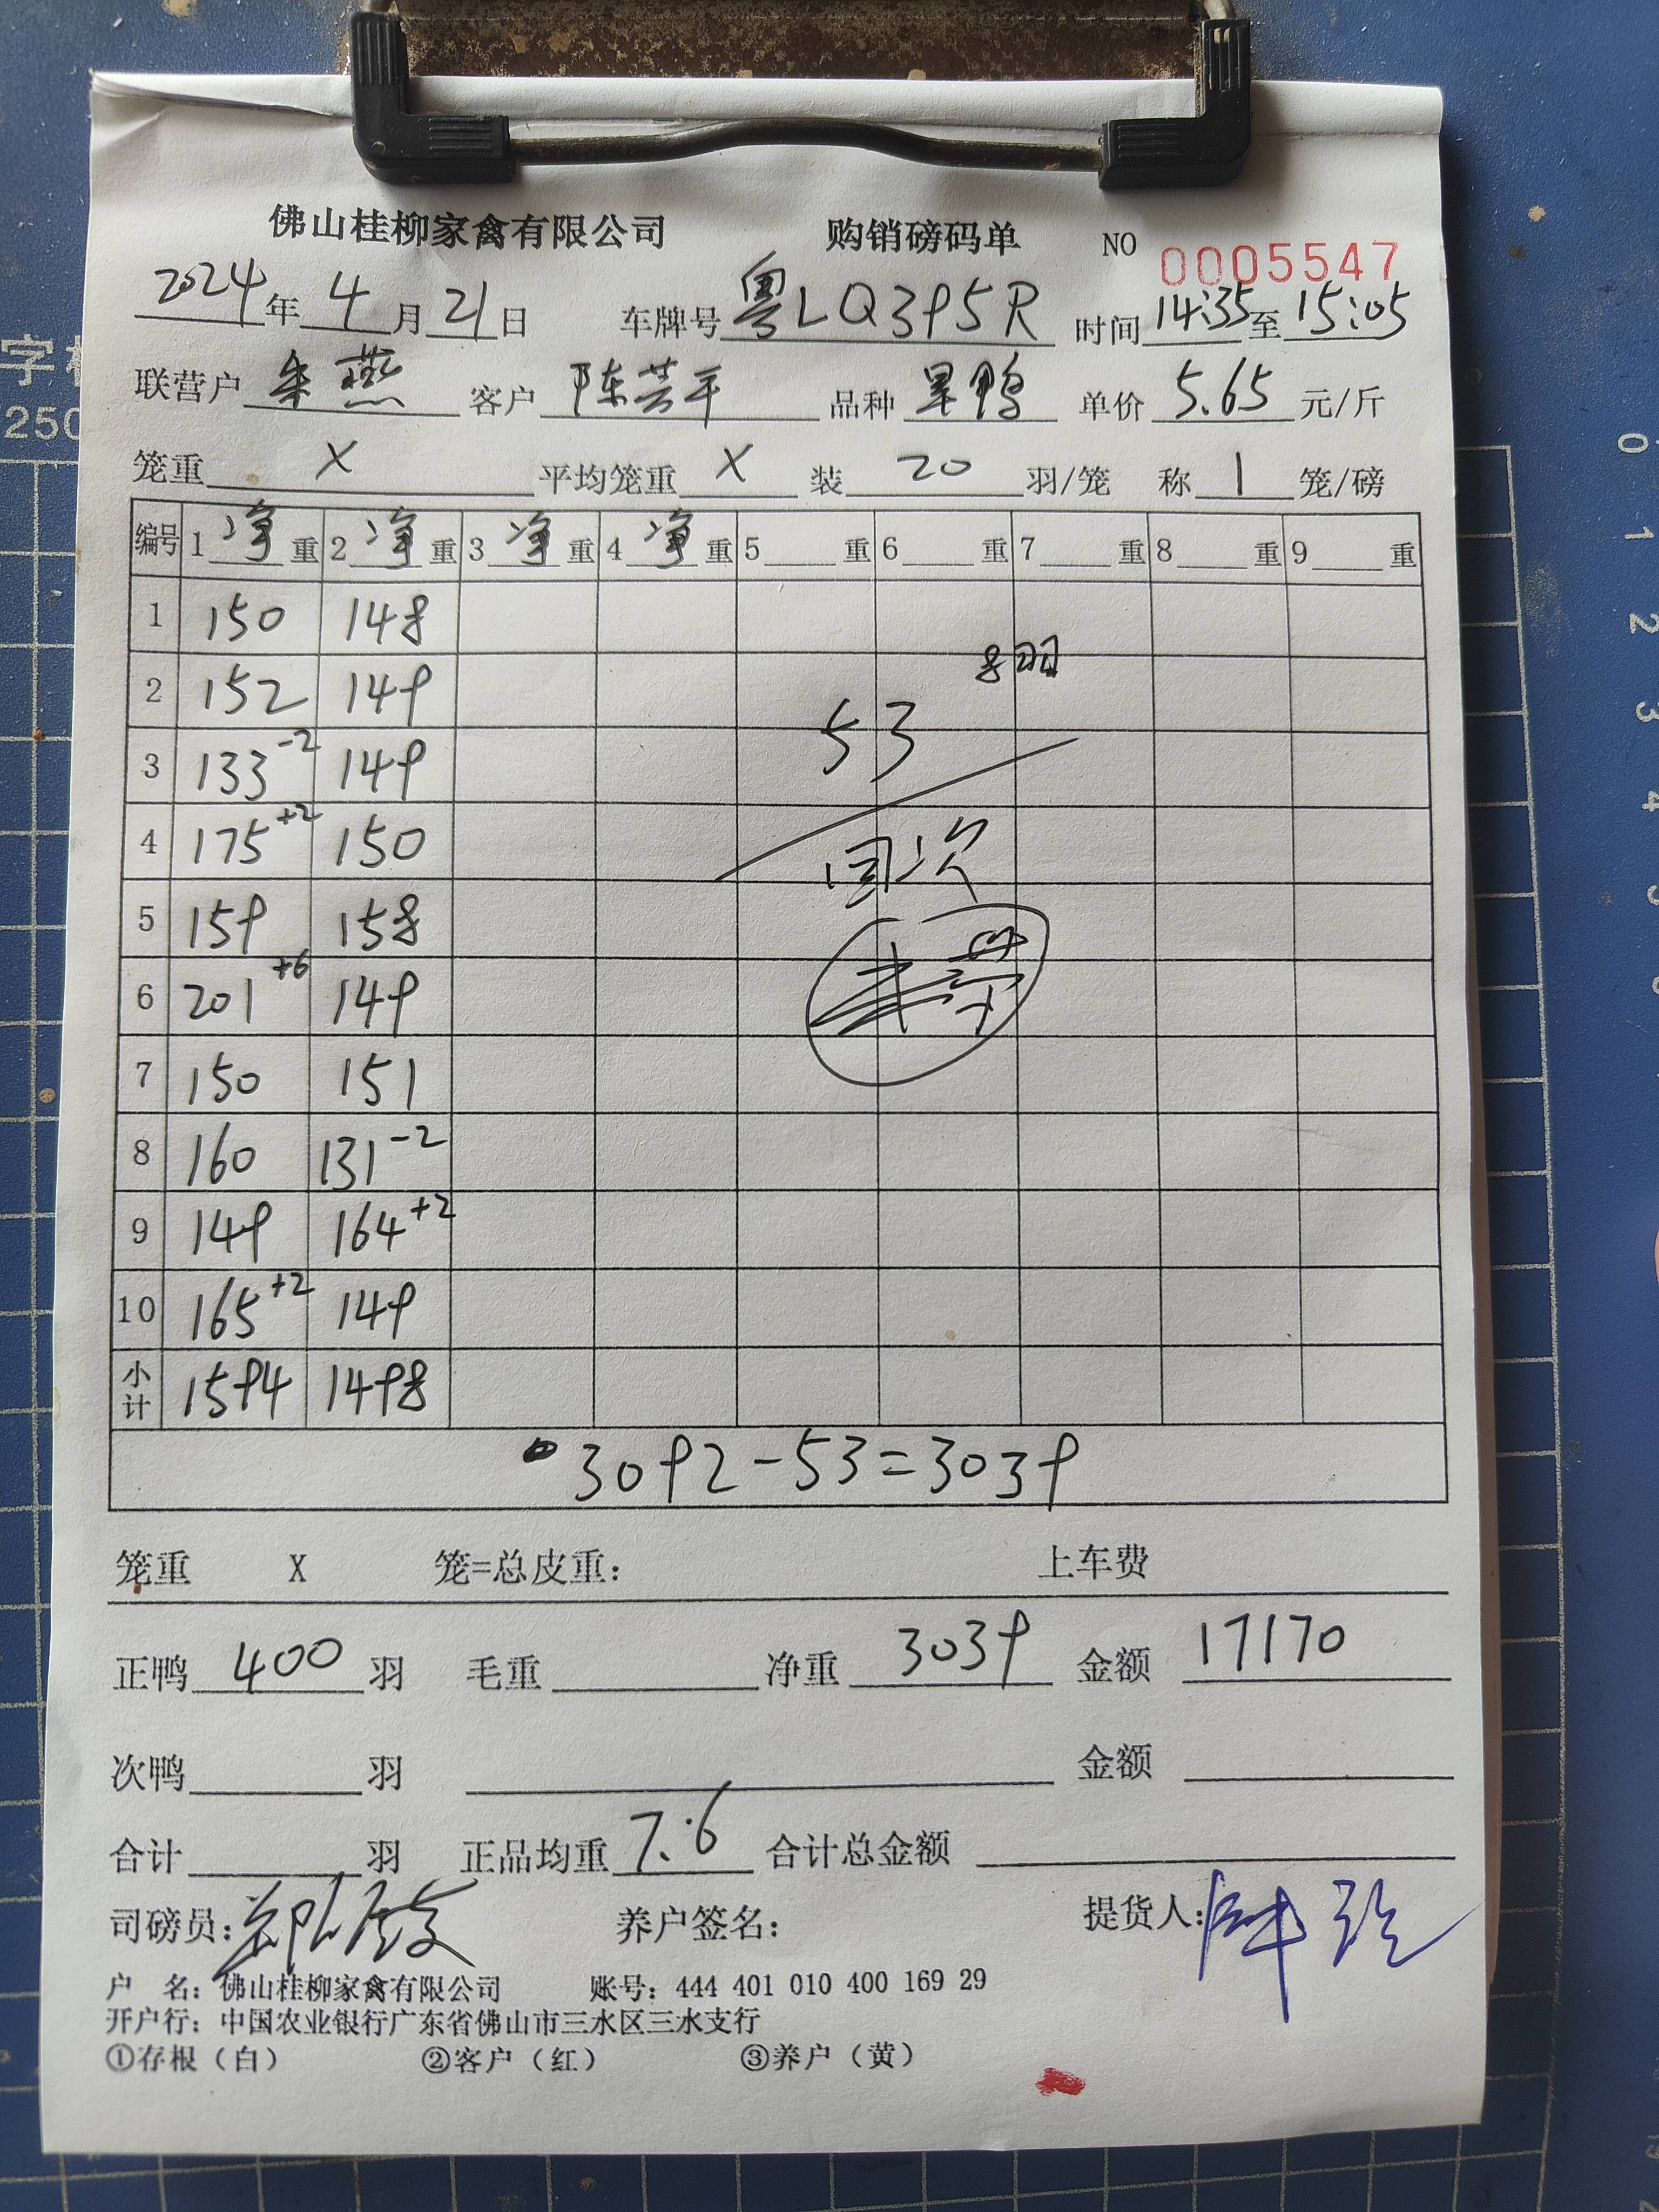 佛山桂柳家禽有限公司 购销磅码单 NO 0005547
2024年 4月 21日 车牌号 粤LQ395R 时间 14:35 至 15:05
联营户 朱燕 客户 陈芸平 品种 鸭 单价 5.65 元/斤
笼重 X 平均笼重 X 装 20 羽/笼 称 1 笼/磅
编号 1 净重 2 净重 3 净重 4 净重 5 重 6 重 7 重 8 重 9 重
1 150 148
8羽
2 152 149
53
3 133-2 149
4 175+2 150
回次
5 159 158
6 201+6 149
7 150 151
8 160 131-2
9 149 164+2
10 165+2 149
小计 1594 1498
3092-53=3039
笼重 X 笼=总皮重: 上车费
正鸭 400 羽 毛重 净重 3039 金额 17170
次鸭 羽 金额
合计 羽 正品均重 7.6 合计总金额
司磅员: 养户签名: 提货人:
户 名: 佛山桂柳家禽有限公司 账号: 444 401 010 400 169 29
开户行: 中国农业银行广东省佛山市三水区三水支行
①存根（白） ②客户（红） ③养户（黄）